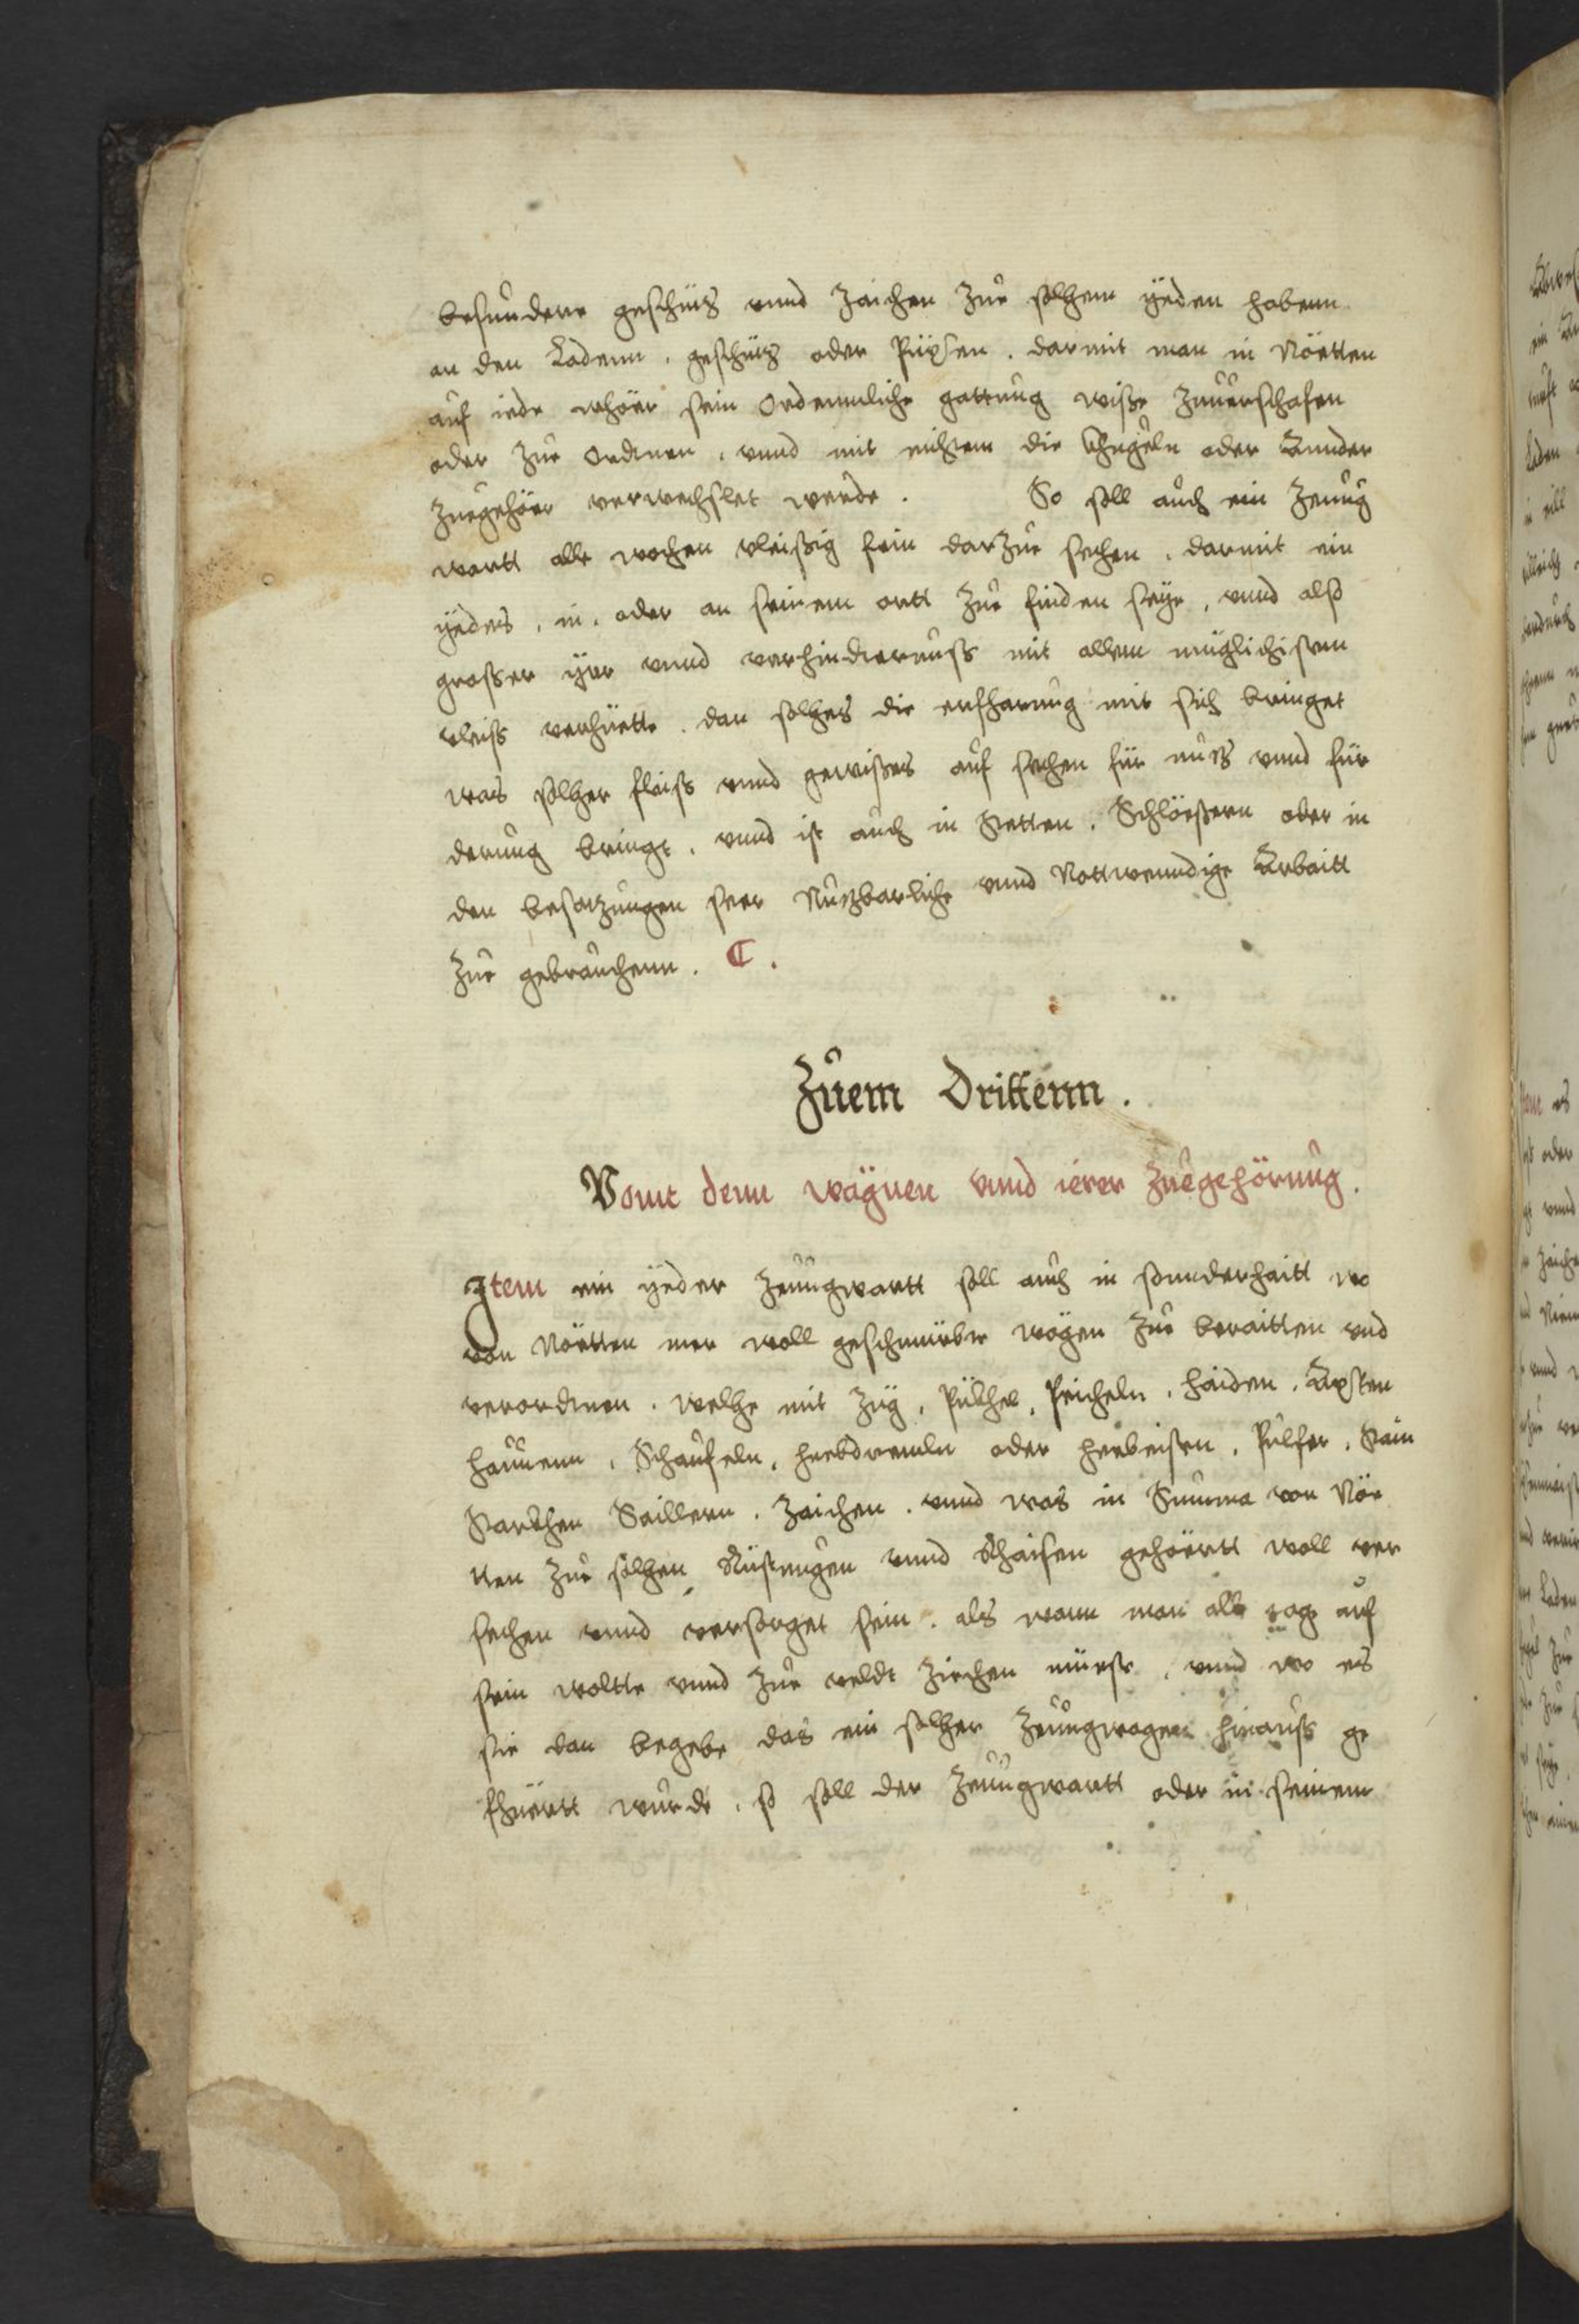 besunndere geschütz unnd zaichen zue solhem yeden habenn
an den Ladenn, geschütz oder Püxsen, darmit man in Nöetten
auf iede whöer sein Ordennliche gattung wisse zuuerschafen
oder zue ordnen, unnd mit nichten die khugeln oder Annder
Zuegehöer verwechslet werde. So soll auch ein Zeuug
wartt alle wochen vleissig sein darzue sechen, darmit ein
yedes, in, oder an seinem ortt zue finden seye, unnd also
grosser yrr unnd verhindernuss mit allem müglichisten
vleiss verhüette, dan solhes die erfharung mit sich bringet
was solher fleiss unnd gewisses auf sechen für nutz unnd für
derung bringt, unnd ist auch in Stetten, Schlössern oder in
den besatzungen seer Nutzbarliche unnd Nottwenndige Arbaitt
zue gebrauchenn. C.
Zuem Drittenn.
Vonn denn wägnen unnd ierer zuegehörung.
Item ein yeder Zeuugwartt soll auch in sonnderhaitt wo
von Nöetten mer woll geschmirbte wägen zue beraitten und
verordnen, welhe mit Züg, Pükhel, Peicheln, haiden, Axsten
hauuenn, Schaufeln, hebdremln oder hebeissen, Pulfer, Stain
Starkhen Saillern, zaichen, unnd was in Summa von Nöe
tten zue solhen Rüstungen unnd Raisen gehöertt woll ver
sechen unnd versorget sein, als wann man alle tag auf
sein woltte unnd zue veldt ziechen müeste, unnd wo es
sie dan begebe das ein solher Zeuugwagen hinauss ge
fhüertt wurde, so soll der Zeuugwartt oder in seinem